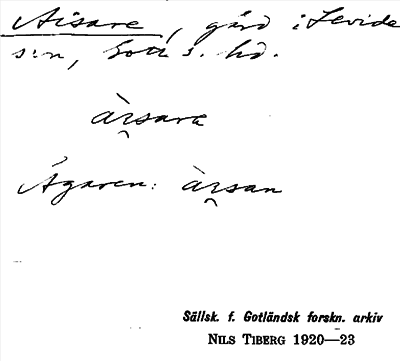 Aisare, gård i Levide
s:n, Gotl. s. hd.
àrsara
Ägaren: àrsan
Sällsk. f. Gotländsk forskn. arkiv
NILS TIBERG 1920—23